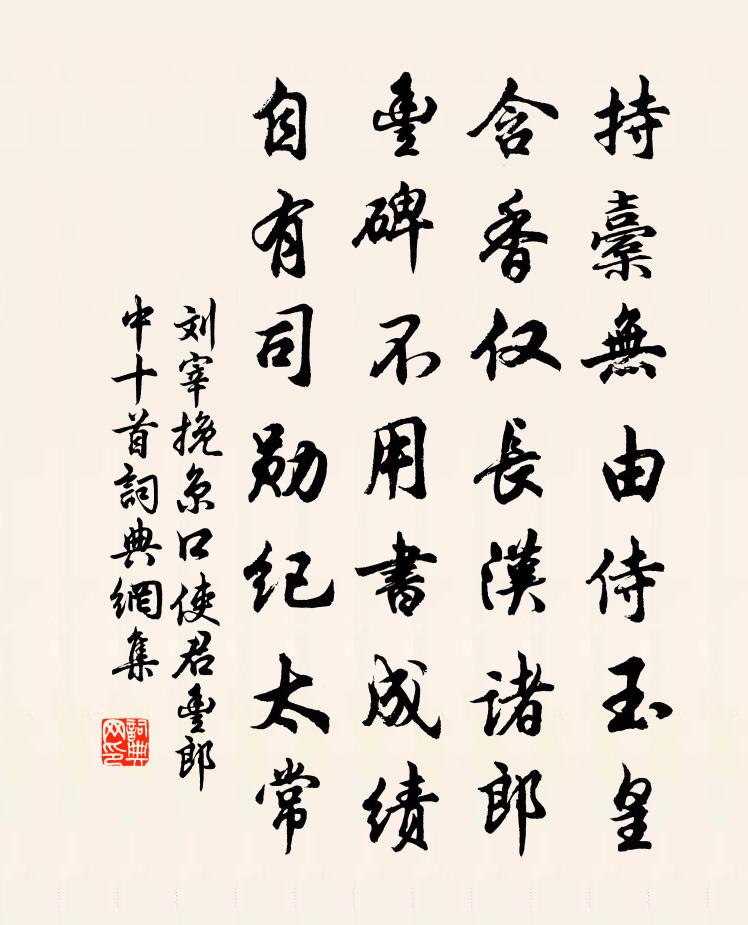 持橐無由侍玉皇
含香仅長漢諸郎
豊碑不用書成绩
自有司勋纪太常
刘宰挽京口使君豊郎
中十首詞典網集
詞典网印